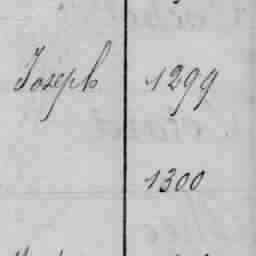 Joseph 1299
1300